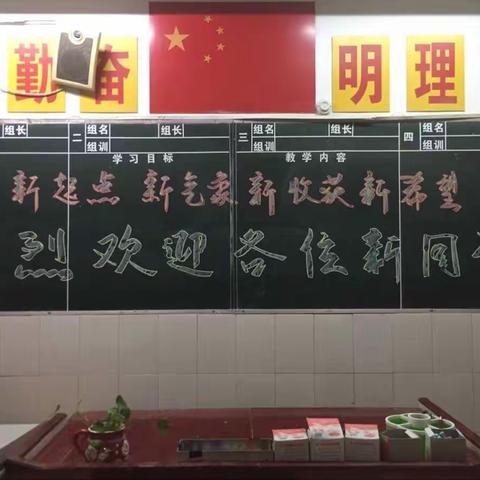 勤奋 明理
组长 二 组名 组长 三 组名 组长 四 组名
组训 组训 组训
学习目标 教学内容
新起点 新气象 新收获 新希望
烈欢迎各位新同